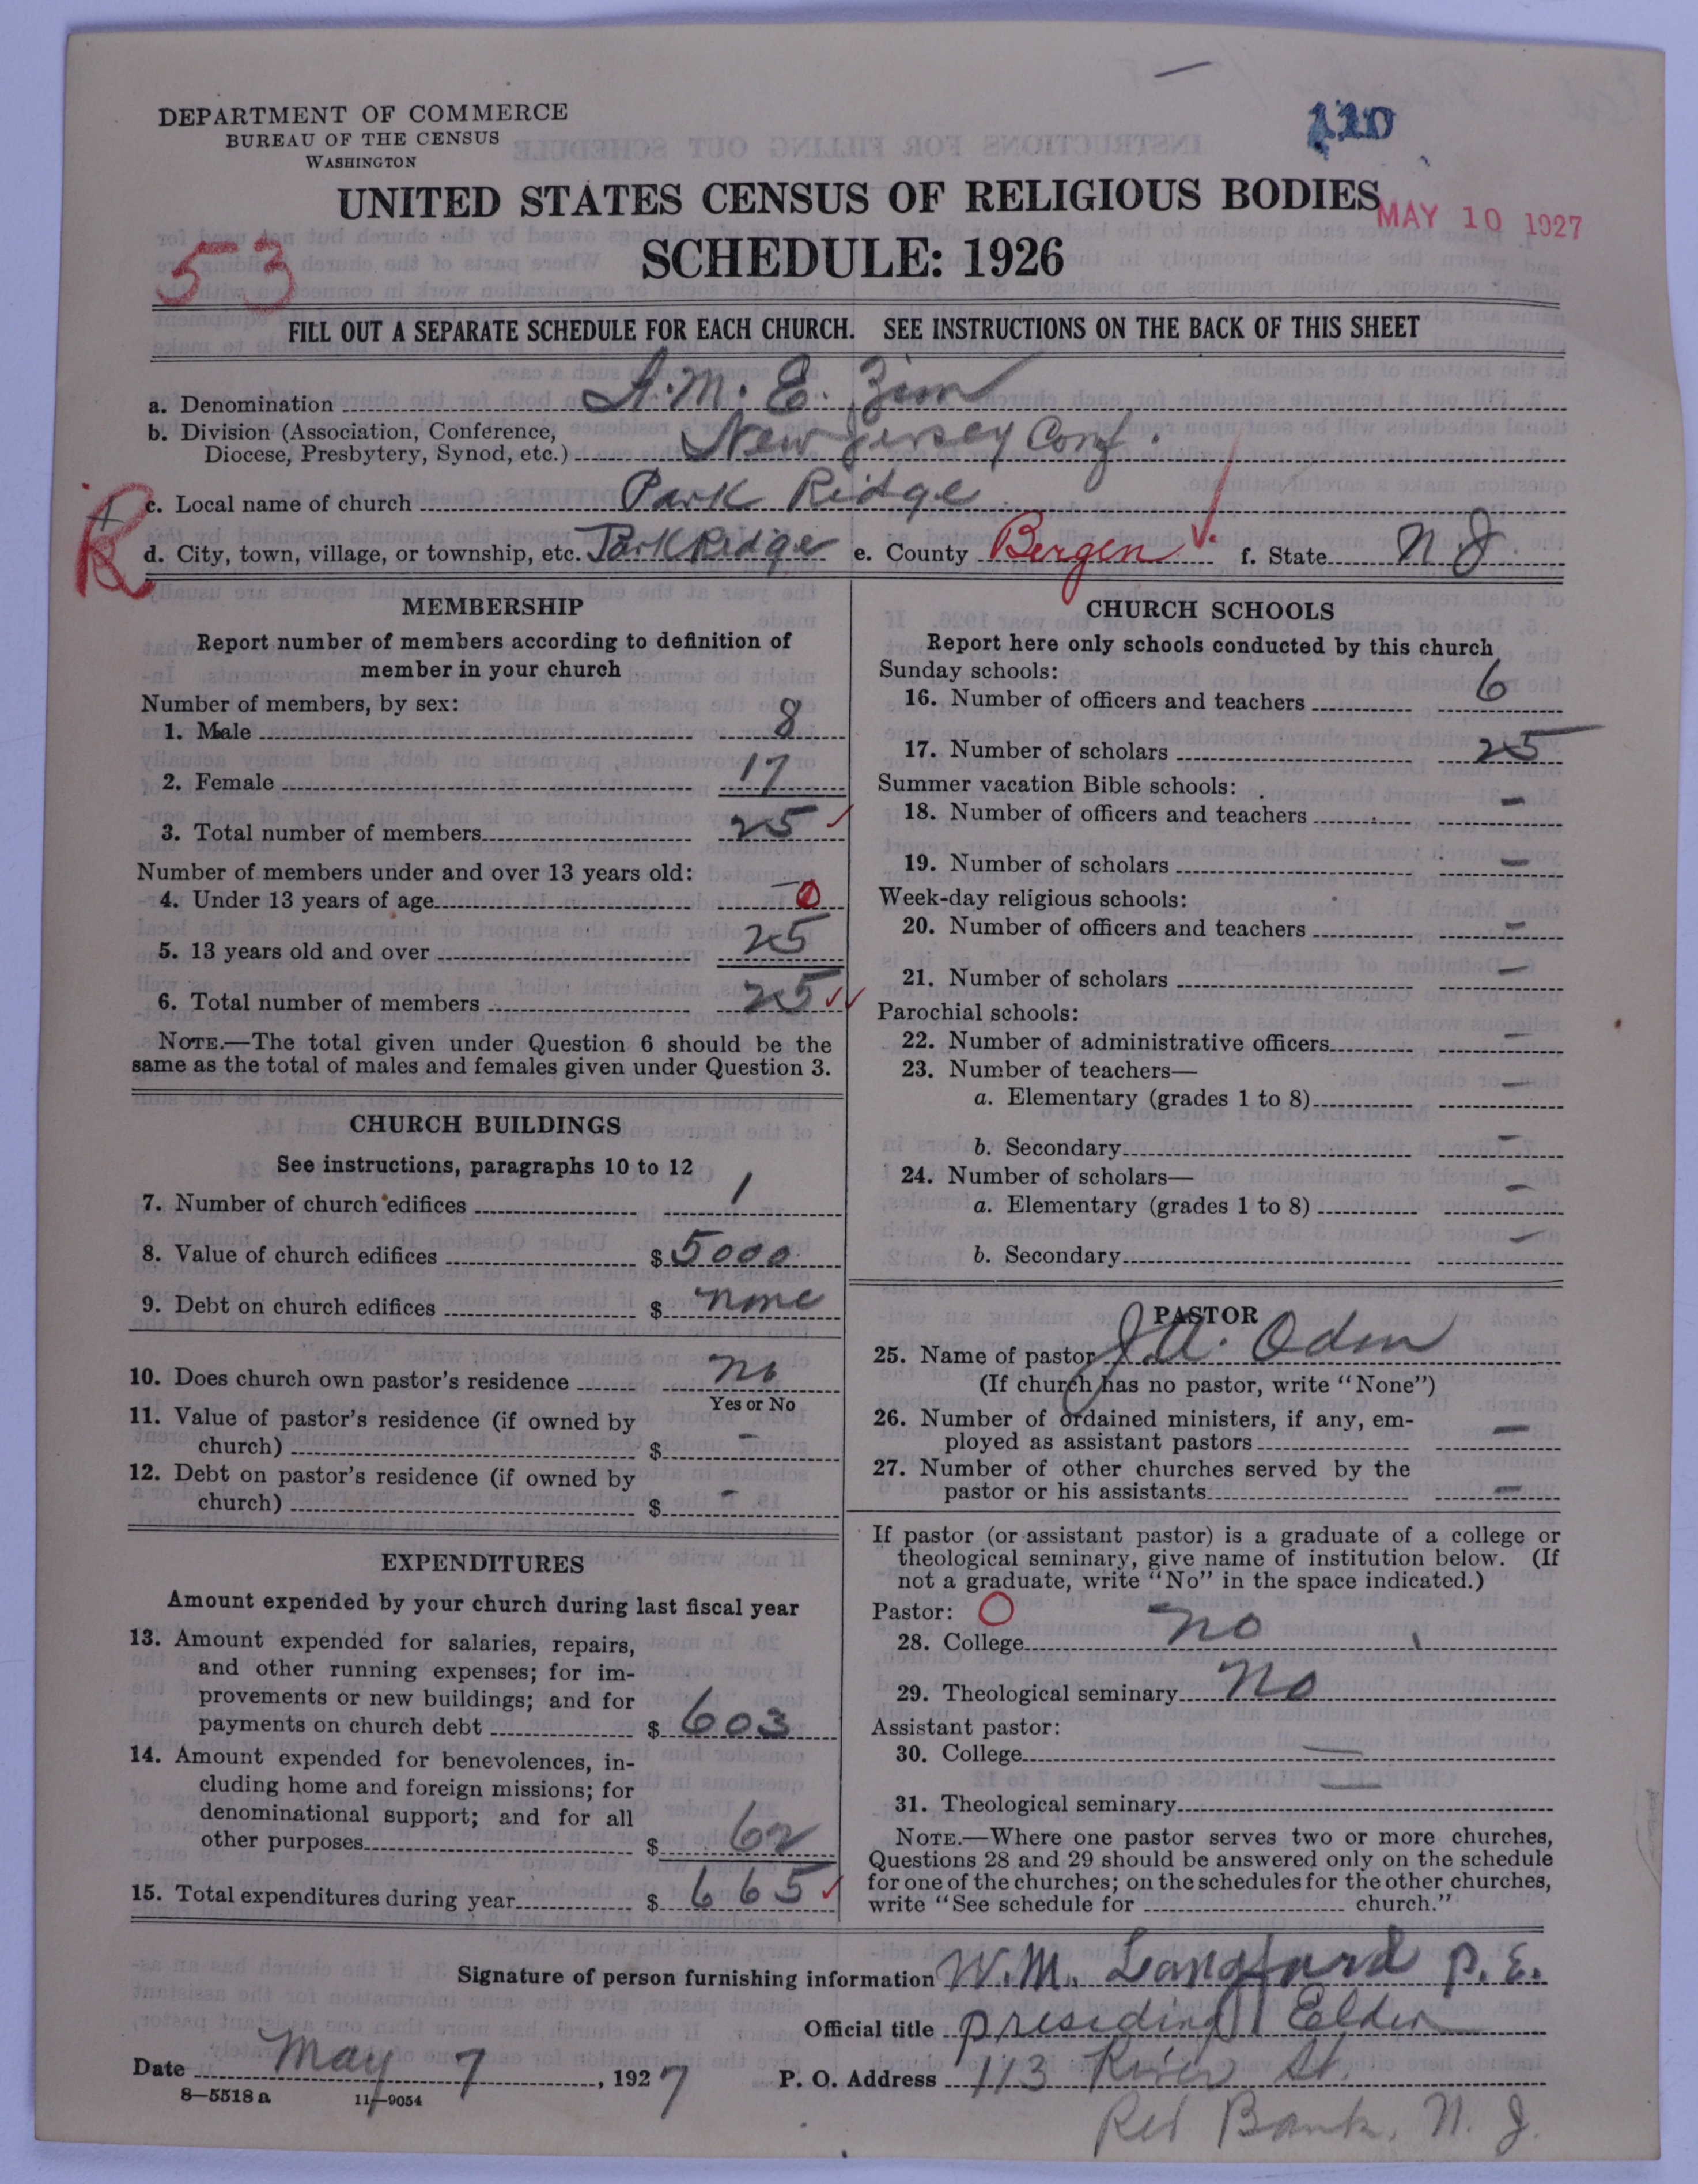 DEPARTMENT OF COMMERCE
BUREAU OF THE CENSUS
WASHINGTON
110
UNITED STATES CENSUS OF RELIGIOUS BODIES
MAY 10 1927
SCHEDULE: 1926
53
FILL OUT A SEPARATE SCHEDULE FOR EACH CHURCH. SEE INSTRUCTIONS ON THE BACK OF THIS SHEET
a. Denomination A. M. E. Zion
b. Division (Association, Conference,
Diocese, Presbytery, Synod, etc.) New Jersey Conf.
c. Local name of church Park Ridge
R
d. City, town, village, or township, etc. Park Ridge e. County Bergen f. State N. J.
MEMBERSHIP
Report number of members according to definition of
member in your church
Number of members, by sex:
1. Male 8
2. Female 17
3. Total number of members 25
Number of members under and over 13 years old:
4. Under 13 years of age 0
5. 13 years old and over 25
6. Total number of members 25
NOTE.—The total given under Question 6 should be the
same as the total of males and females given under Question 3.
CHURCH BUILDINGS
See instructions, paragraphs 10 to 12
7. Number of church edifices 1
8. Value of church edifices $ 5000
9. Debt on church edifices $ none
10. Does church own pastor's residence no
Yes or No
11. Value of pastor's residence (if owned by
church) $ -
12. Debt on pastor's residence (if owned by
church) $ -
EXPENDITURES
Amount expended by your church during last fiscal year
13. Amount expended for salaries, repairs,
and other running expenses; for im-
provements or new buildings; and for
payments on church debt $ 603
14. Amount expended for benevolences, in-
cluding home and foreign missions; for
denominational support; and for all
other purposes $ 62
15. Total expenditures during year $ 665
CHURCH SCHOOLS
Report here only schools conducted by this church
Sunday schools:
16. Number of officers and teachers 6
17. Number of scholars 25
Summer vacation Bible schools:
18. Number of officers and teachers -
19. Number of scholars -
Week-day religious schools:
20. Number of officers and teachers -
21. Number of scholars -
Parochial schools:
22. Number of administrative officers -
23. Number of teachers—
a. Elementary (grades 1 to 8) -
b. Secondary -
24. Number of scholars—
a. Elementary (grades 1 to 8) -
b. Secondary -
PASTOR
25. Name of pastor J. A. Oden
(If church has no pastor, write "None")
26. Number of ordained ministers, if any, em-
ployed as assistant pastors -
27. Number of other churches served by the
pastor or his assistants -
If pastor (or assistant pastor) is a graduate of a college or
theological seminary, give name of institution below. (If
not a graduate, write "No" in the space indicated.)
Pastor: O
28. College no
29. Theological seminary No
Assistant pastor:
30. College —
31. Theological seminary —
NOTE.—Where one pastor serves two or more churches,
Questions 28 and 29 should be answered only on the schedule
for one of the churches; on the schedules for the other churches,
write "See schedule for church."
Signature of person furnishing information W. M. Langford P. E.
Official title presiding Elder
Date May 7, 1927 P. O. Address 113 River St.
8—5518 a 11—9054
Red Bank, N. J.